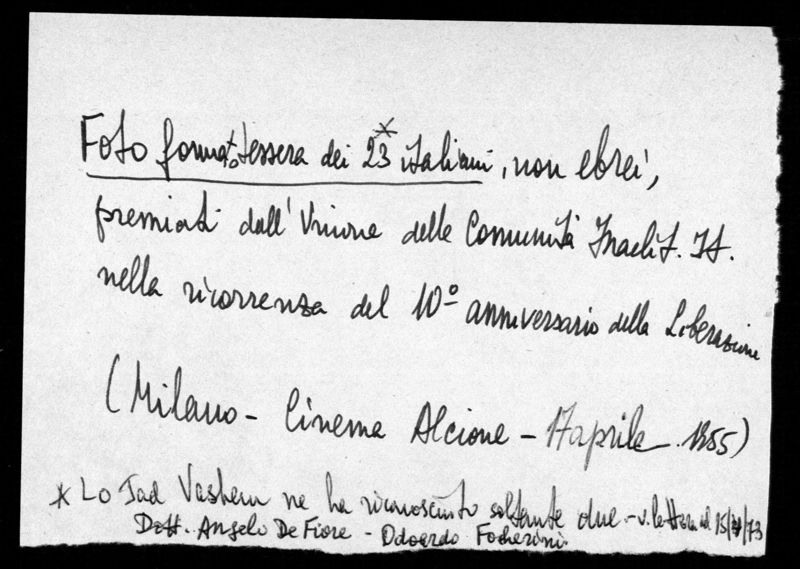 Foto formato tessera dei 23* italiani, non ebrei,
premiati dall'Unione delle Comunità Israelit. It.
nella ricorrenza del 10° anniversario della Liberazione
(Milano - Cinema Alcione - 17 aprile 1955)
* Lo Jad Vashem ne ha riconosciuto soltanto due - v. lettera del
Dott. Angelo De Fiore - Odoardo Focherini.